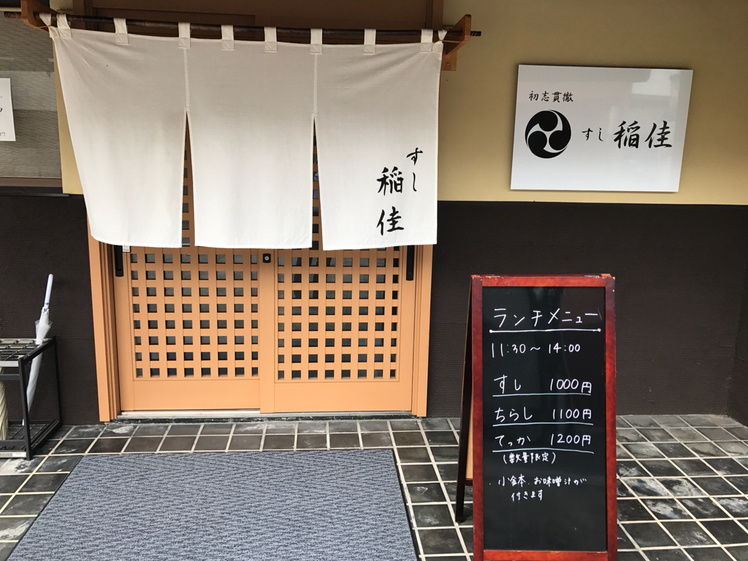 すし
稲佳
初志貫徹
すし 稲佳
ランチメニュー
11:30～14:00
すし 1000円
ちらし 1100円
てっか 1200円
(数量限定)
・小鉢、お味噌汁が
付きます